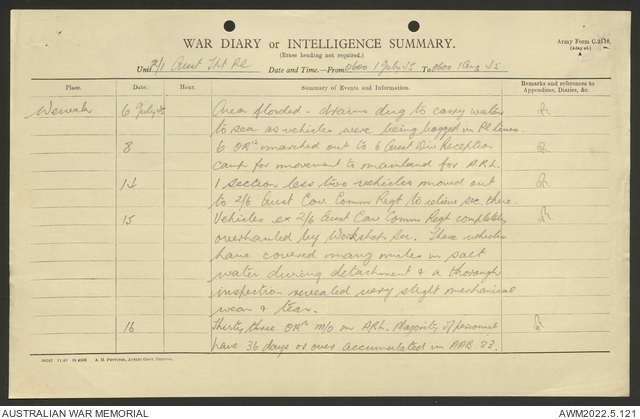 WAR DIARY or INTELLIGENCE SUMMARY.
(Erase heading not required).
Army Form C.2118.
(Adapted.)
Unit 2/1 Aust Tpt Pl Date and Time.—From 0600 1 July 45 To 0600 1 Aug 45
Place. Date. Hour. Summary of Events and Information. Remarks and references to Appendices, Diaries, &c.
Wewak 6 July 45 Area flooded - drains dug to carry water
to sea as vehicles were being bogged in Pl lines.
8 6 ORs marched out to 6 Aust Div Reception
Camp for movement to mainland for A.R.L.
14 1 section less two vehicles moved out
to 2/6 Aust Cav Comm Regt to relieve sec. there.
15 Vehicles ex 2/6 Aust Cav Comm Regt completely
overhauled by Workshop Sec. These vehicles
have covered many miles in salt
water during detachment & a thorough
inspection revealed very slight mechanical
wear & tear.
16 Thirty three ORs m/o on A.R.L. Majority of personnel
have 36 days or over accumulated in AAB 83.
AUSTRALIAN WAR MEMORIAL
AWM2022.5.121